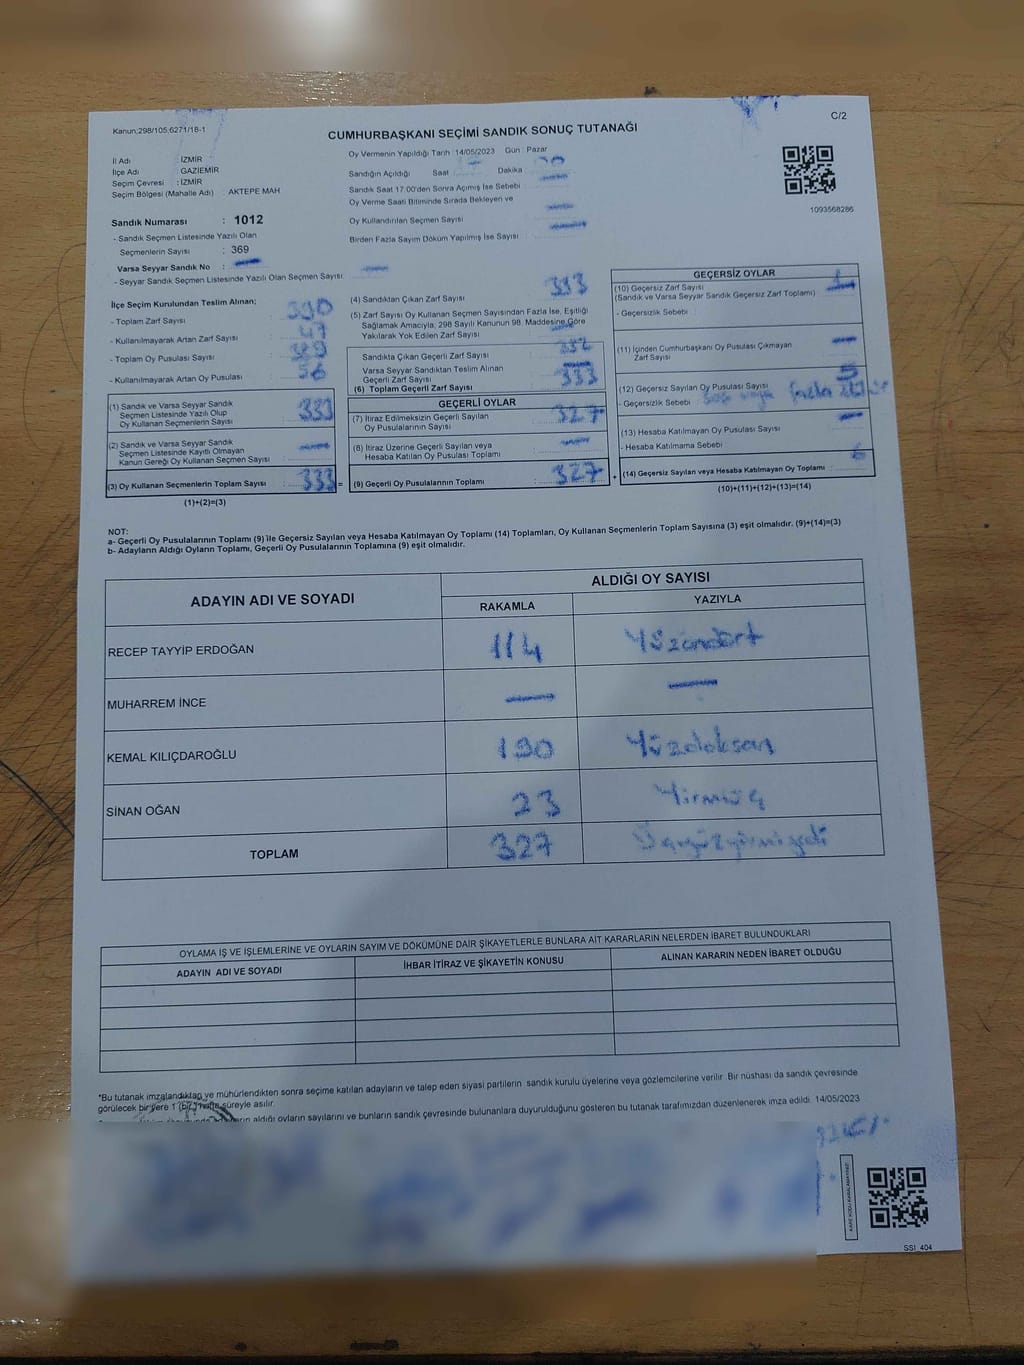 Kanun:298/105:6271/18-1
C/2
CUMHURBAŞKANI SEÇİMİ SANDIK SONUÇ TUTANAĞI
İl Adı : İZMİR
İlçe Adı : GAZİEMİR
Seçim Çevresi : İZMİR
Seçim Bölgesi (Mahalle Adı) : AKTEPE MAH
Sandık Numarası : 1012
- Sandık Seçmen Listesinde Yazılı Olan
Seçmenlerin Sayısı : 369
Varsa Seyyar Sandık No :
- Seyyar Sandık Seçmen Listesinde Yazılı Olan Seçmen Sayısı:
Oy Vermenin Yapıldığı Tarih : 14/05/2023 Gün : Pazar
Sandığın Açıldığı Saat Dakika
Sandık Saat 17.00'den Sonra Açımış İse Sebebi
Oy Verme Saati Bitiminde Sırada Bekleyen ve
Oy Kullandırılan Seçmen Sayısı
Birden Fazla Sayım Döküm Yapılmış İse Sayısı
1093568286
İlçe Seçim Kurulundan Teslim Alınan;
- Toplam Zarf Sayısı : 390
- Kullanılmayarak Artan Zarf Sayısı : 57
- Toplam Oy Pusulası Sayısı : 389
- Kullanılmayarak Artan Oy Pusulası : 56
(1) Sandık ve Varsa Seyyar Sandık
Seçmen Listesinde Yazılı Olup
Oy Kullanan Seçmenlerin Sayısı : 333
(2) Sandık ve Varsa Seyyar Sandık
Seçmen Listesinde Kayıtlı Olmayan
Kanun Gereği Oy Kullanan Seçmen Sayısı :
(3) Oy Kullanan Seçmenlerin Toplam Sayısı : 333 =
(1)+(2)=(3)
(4) Sandıktan Çıkan Zarf Sayısı 333
(5) Zarf Sayısı Oy Kullanan Seçmen Sayısından Fazla İse, Eşitliği
Sağlamak Amacıyla; 298 Sayılı Kanunun 98. Maddesine Göre
Yakılarak Yok Edilen Zarf Sayısı
Sandıkta Çıkan Geçerli Zarf Sayısı : 332
Varsa Seyyar Sandıktan Teslim Alınan
Geçerli Zarf Sayısı
(6) Toplam Geçerli Zarf Sayısı : 333
GEÇERLİ OYLAR
(7) İtiraz Edilmeksizin Geçerli Sayılan
Oy Pusulasının Sayısı : 327
(8) İtiraz Üzerine Geçerli Sayılan veya
Hesaba Katılan Oy Pusulası Toplamı :
(9) Geçerli Oy Pusulalarının Toplamı : 327 +
GEÇERSİZ OYLAR
(10) Geçersiz Zarf Sayısı : 1
(Sandık ve Varsa Seyyar Sandık Geçersiz Zarf Toplamı)
- Geçersizlik Sebebi :
(11) İçinden Cumhurbaşkanı Oy Pusulası Çıkmayan
Zarf Sayısı
(12) Geçersiz Sayılan Oy Pusulası Sayısı : 5
- Geçersizlik Sebebi
(13) Hesaba Katılmayan Oy Pusulası Sayısı :
- Hesaba Katılmama Sebebi :
(14) Geçersiz Sayılan veya Hesaba Katılmayan Oy Toplamı : 6
(10)+(11)+(12)+(13)=(14)
NOT:
a- Geçerli Oy Pusulalarının Toplamı (9) ile Geçersiz Sayılan veya Hesaba Katılmayan Oy Toplamı (14) Toplamları, Oy Kullanan Seçmenlerin Toplam Sayısına (3) eşit olmalıdır. (9)+(14)=(3)
b- Adayların Aldığı Oyların Toplamı, Geçerli Oy Pusulalarının Toplamına (9) eşit olmalıdır.
ADAYIN ADI VE SOYADI ALDIĞI OY SAYISI
RAKAMLA YAZIYLA
RECEP TAYYİP ERDOĞAN 114 Yüzondört
MUHARREM İNCE
KEMAL KILIÇDAROĞLU 190 Yüzdoksan
SİNAN OĞAN 23 Yirmiüç
TOPLAM 327 Üçyüzyirmiyedi
OYLAMA İŞ VE İŞLEMLERİNE VE OYLARIN SAYIM VE DÖKÜMÜNE DAİR ŞİKAYETLERLE BUNLARA AİT KARARLARIN NELERDEN İBARET BULUNDUKLARI
ADAYIN ADI VE SOYADI İHBAR İTİRAZ VE ŞİKAYETİN KONUSU ALINAN KARARIN NEDEN İBARET OLDUĞU
*Bu tutanak imzalandıktan ve mühürlendikten sonra seçime katılan adayların ve talep eden siyasi partilerin sandık kurulu üyelerine veya gözlemcilerine verilir. Bir nüshası da sandık çevresinde
görülecek bir yere 1 (bir) hafta süreyle asılır.
aldığı oyların sayılarını ve bunların sandık çevresinde bulunanlara duyurulduğunu gösteren bu tutanak tarafımızdan düzenlenerek imza edildi. 14/05/2023
KARE KODU KARALAMAYINIZ!
SSI_404